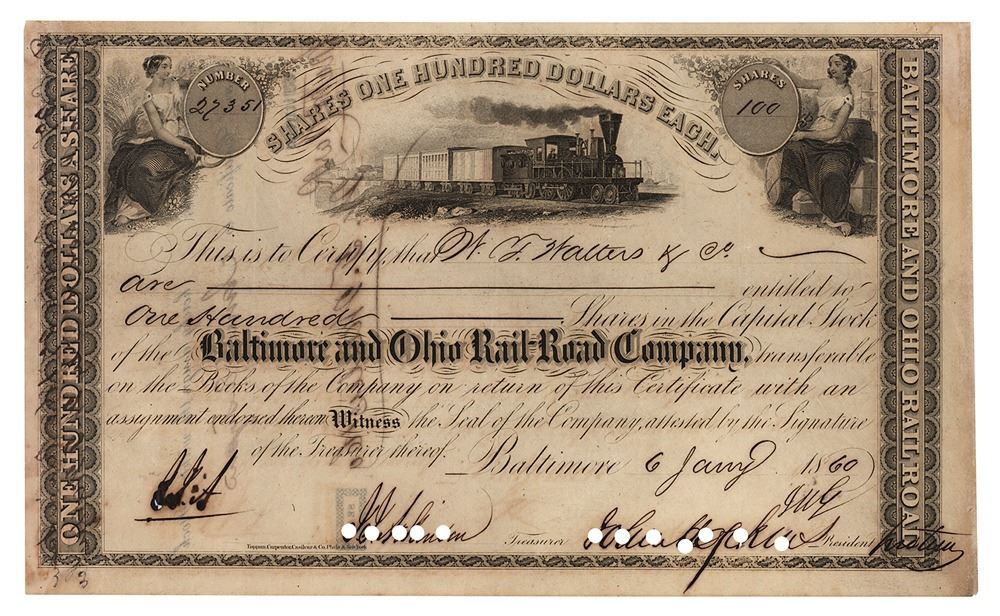 NUMBER
27351
SHARES ONE HUNDRED DOLLARS EACH.
SHARES
100
ONE HUNDRED DOLLARS A SHARE
BALTIMORE AND OHIO RAIL ROAD
This is to Certify, that W. T. Walters & Co
are entitled to
One Hundred Shares in the Capital Stock
of the Baltimore and Ohio Rail-Road Company, transferable
on the Books of the Company on return of this Certificate with an
assignment endorsed thereon Witness the Seal of the Company, attested by the Signature
of the Treasurer thereof. Baltimore 6 Jany 1860
Treasurer
President
Toppan, Carpenter, Casilear & Co. Phila & New York